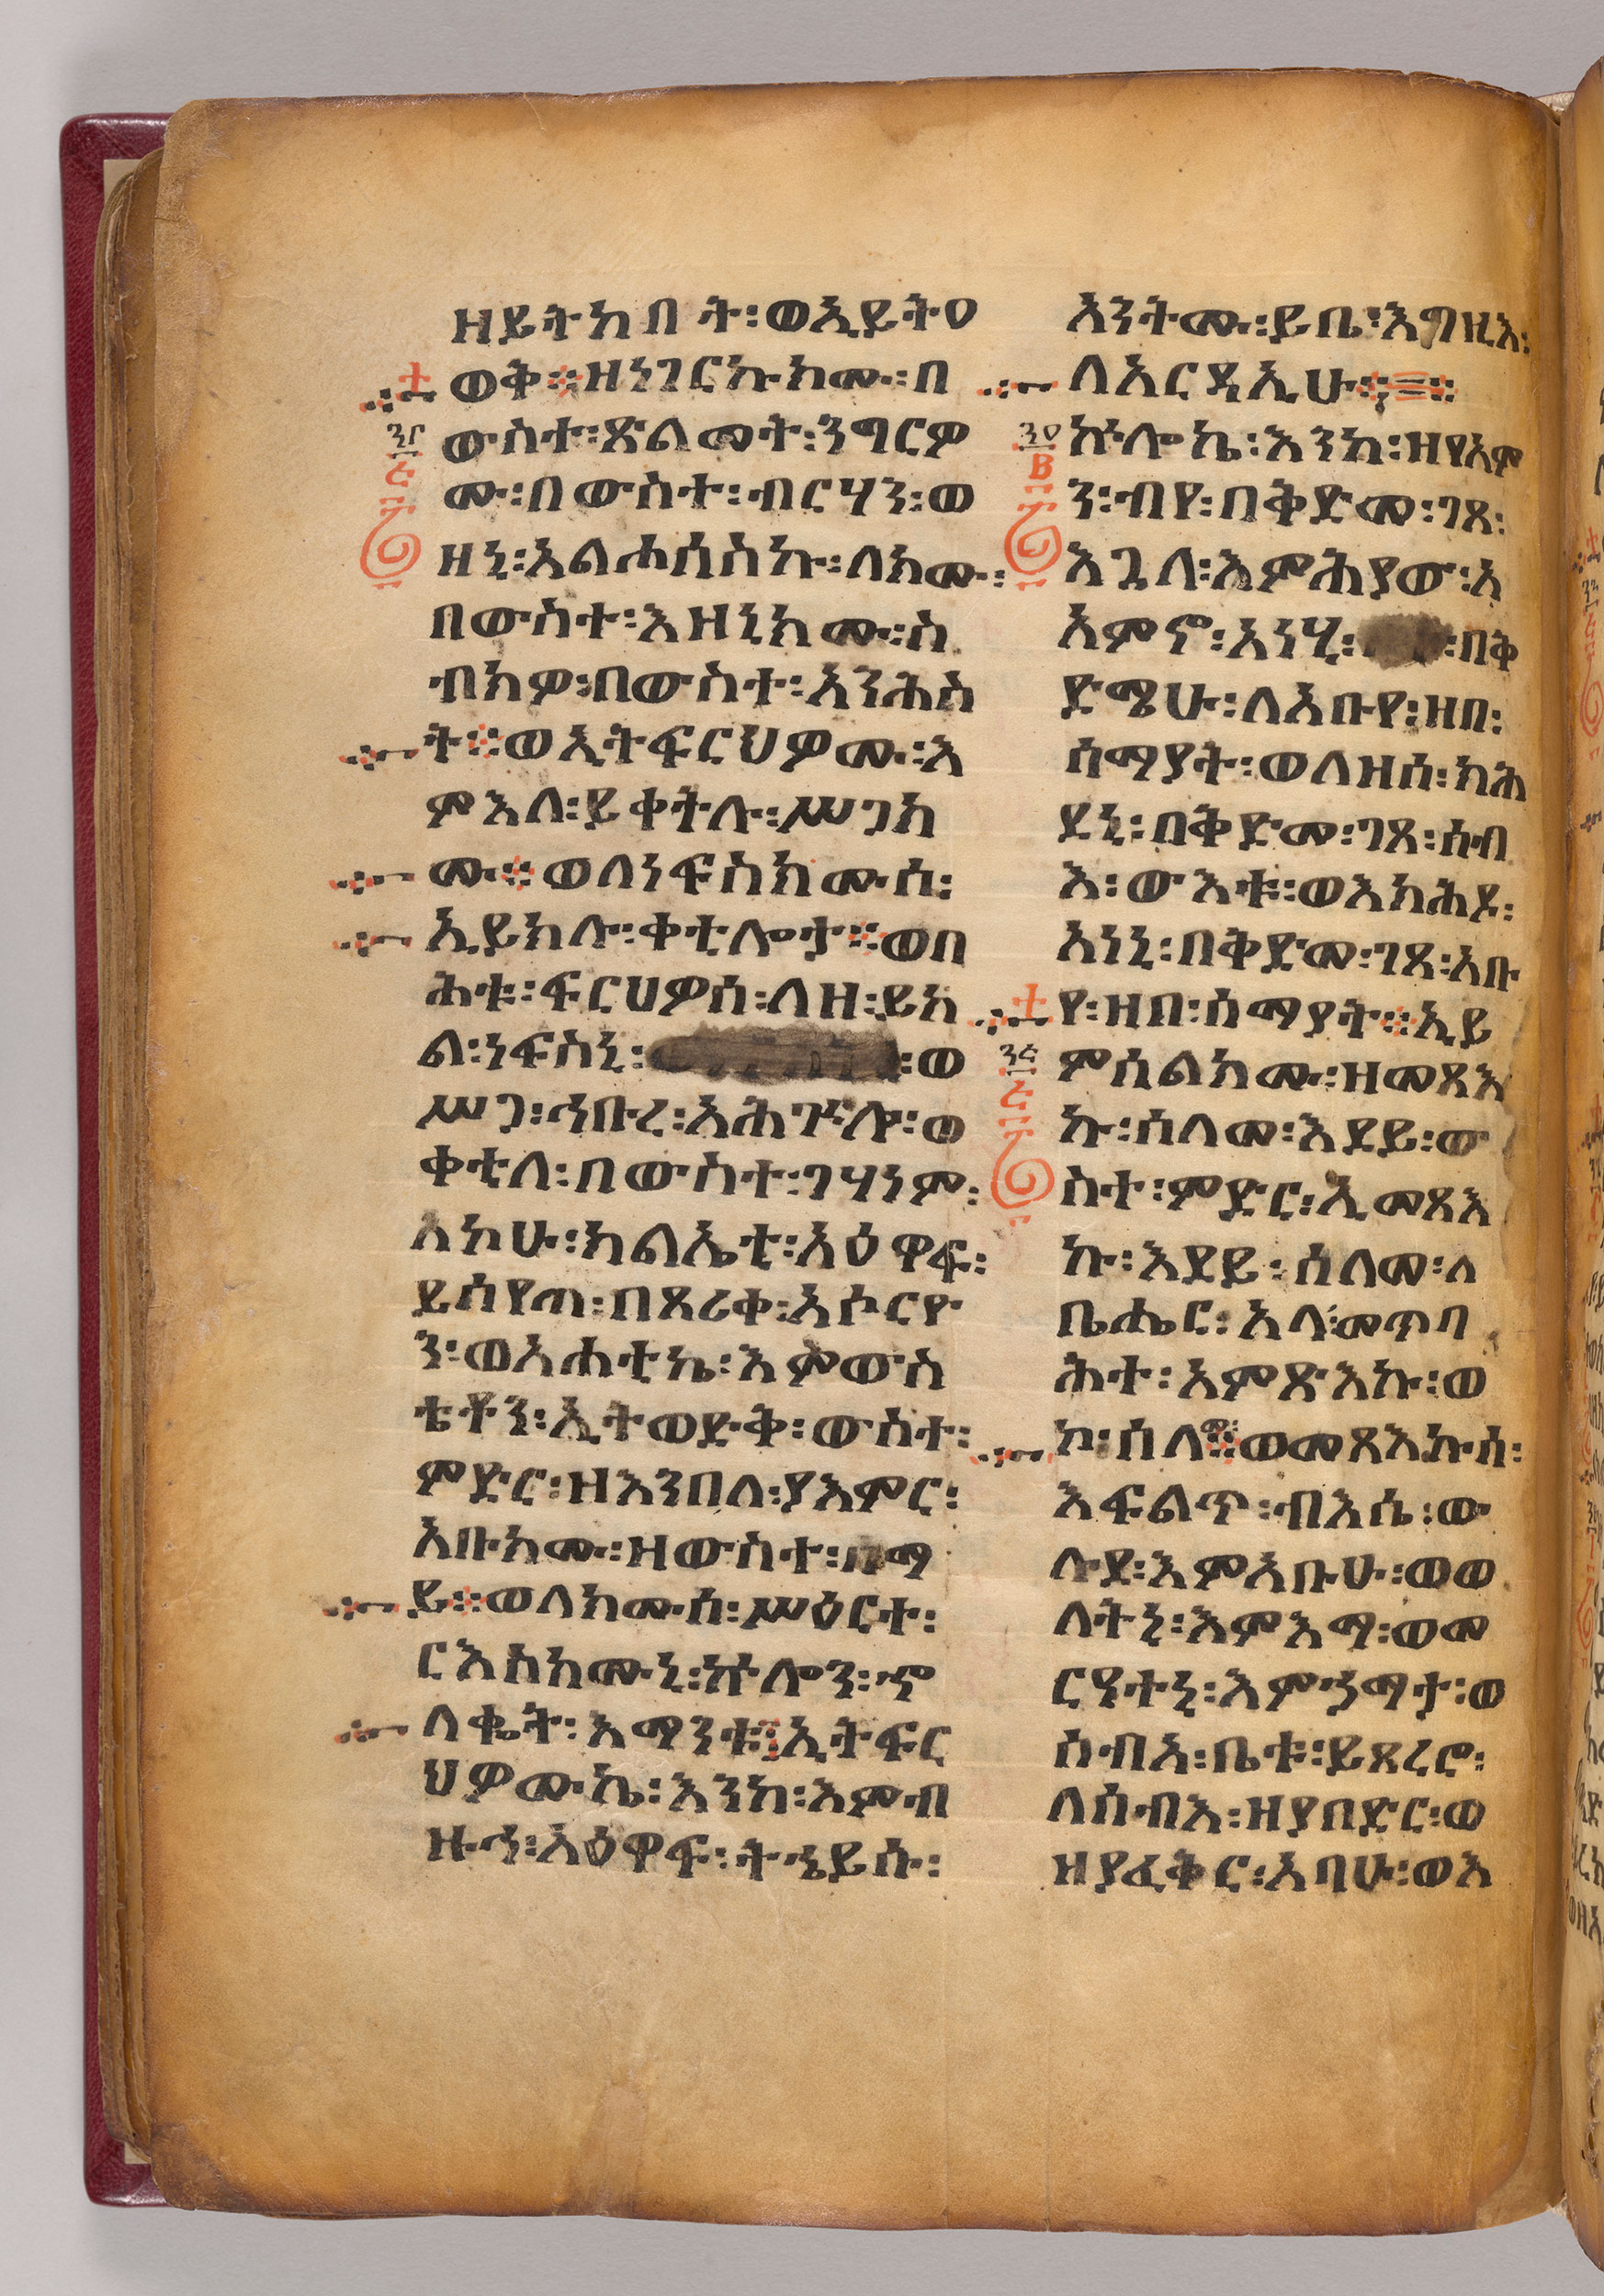 ዘይትከበት፡ወኢይትዐ
ወቅ፨ዘነገርኩክሙ፡በ
ውስተ፡ጽልመት፡ንግርዎ
ሙ፡በውስተ፡ብርሃን፡ወ
ዘኒ፡አልሖሰስኩ፡ለክሙ፡
በውስተ፡እዝኒክሙ፡ስ
ብክዎ፡በውስተ፡አንሕስ
ት፨ወኢትፍርህዎሙ፡እ
ምእለ፡ይቀትሉ፡ሥጋክ
ሙ፨ወለነፍስክሙሰ፡
ኢይክሉ፡ቀቲሎታ፨ወበ
ሕቱ፡ፍርህዎሰ፡ለዘ፡ይክ
ል፡ነፍስኒ፡ ፡ወ
ሥጋ፡ኅቡረ፡አሕጕሎ፡ወ
ቀቲለ፡በውስተ፡ገሃነም፡
አኮሁ፡ክልኤቲ፡አዕዋፍ፡
ይሰየጣ፡በጸሪቀ፡አሶርዮ
ን፡ወአሐቲኬ፡እምውስ
ቴቶን፡ኢትወድቅ፡ውስተ፡
ምድር፡ዘእንበለ፡ያእምር፡
አቡክሙ፡ዘውስተ፡ሰማ
ይ፨ወለክሙሰ፡ሥዕርተ፡
ርእስክሙኒ፡ኵሎን፡ኍ
ለቈት፡እማንቱ፨ኢትፍር
ህዎሙኬ፡እንከ፡እምብ
ዙኅ፡አዕዋፍ፡ትኄይሱ፡
አንትሙ፡ይቤ፡እግዚእ፡
ለአርዳኢሁ፨=፨
ኵሎኬ፡እንከ፡ዘየአም
ን፡ብየ፡በቅድመ፡ገጸ፡
እጓለ፡እምሕያው፡አ
አምኖ፡አነሂ፡ ፡በቅ
ድሜሁ፡ለአቡየ፡ዘበ፡
ሰማያት፡ወለዘሰ፡ክሕ
ደኒ፡በቅድመ፡ገጸ፡ሰብ
እ፡ውእቱ፡ወእክሕዶ፡
አነኒ፡በቅድመ፡ገጸ፡አቡ
የ፡ዘበ፡ሰማያት፨ኢይ
ምሰልክሙ፡ዘመጻእ
ኩ፡ሰላመ፡እደይ፡ው
ስተ፡ምድር፡ኢመጻእ
ኩ፡እደይ፡ሰላመ፡ለ
ብሔር፡አላ፡መጥባ
ሕተ፡አምጻእኩ፡ወ
ኮ፡ሰላመ፨ወመጻእኩሰ፡
እፍልጥ፡ብእሴ፡ው
ሉደ፡እምአቡሁ፡ወወ
ለትኒ፡እምእማ፡ወመ
ርዓተኒ፡እምኃማታ፡ወ
ሰብአ፡ቤቱ፡ይጸረሮ፡
ለሰብእ፡ዘያበድር፡ወ
ዘያፈቅር፡አባሁ፡ወእ